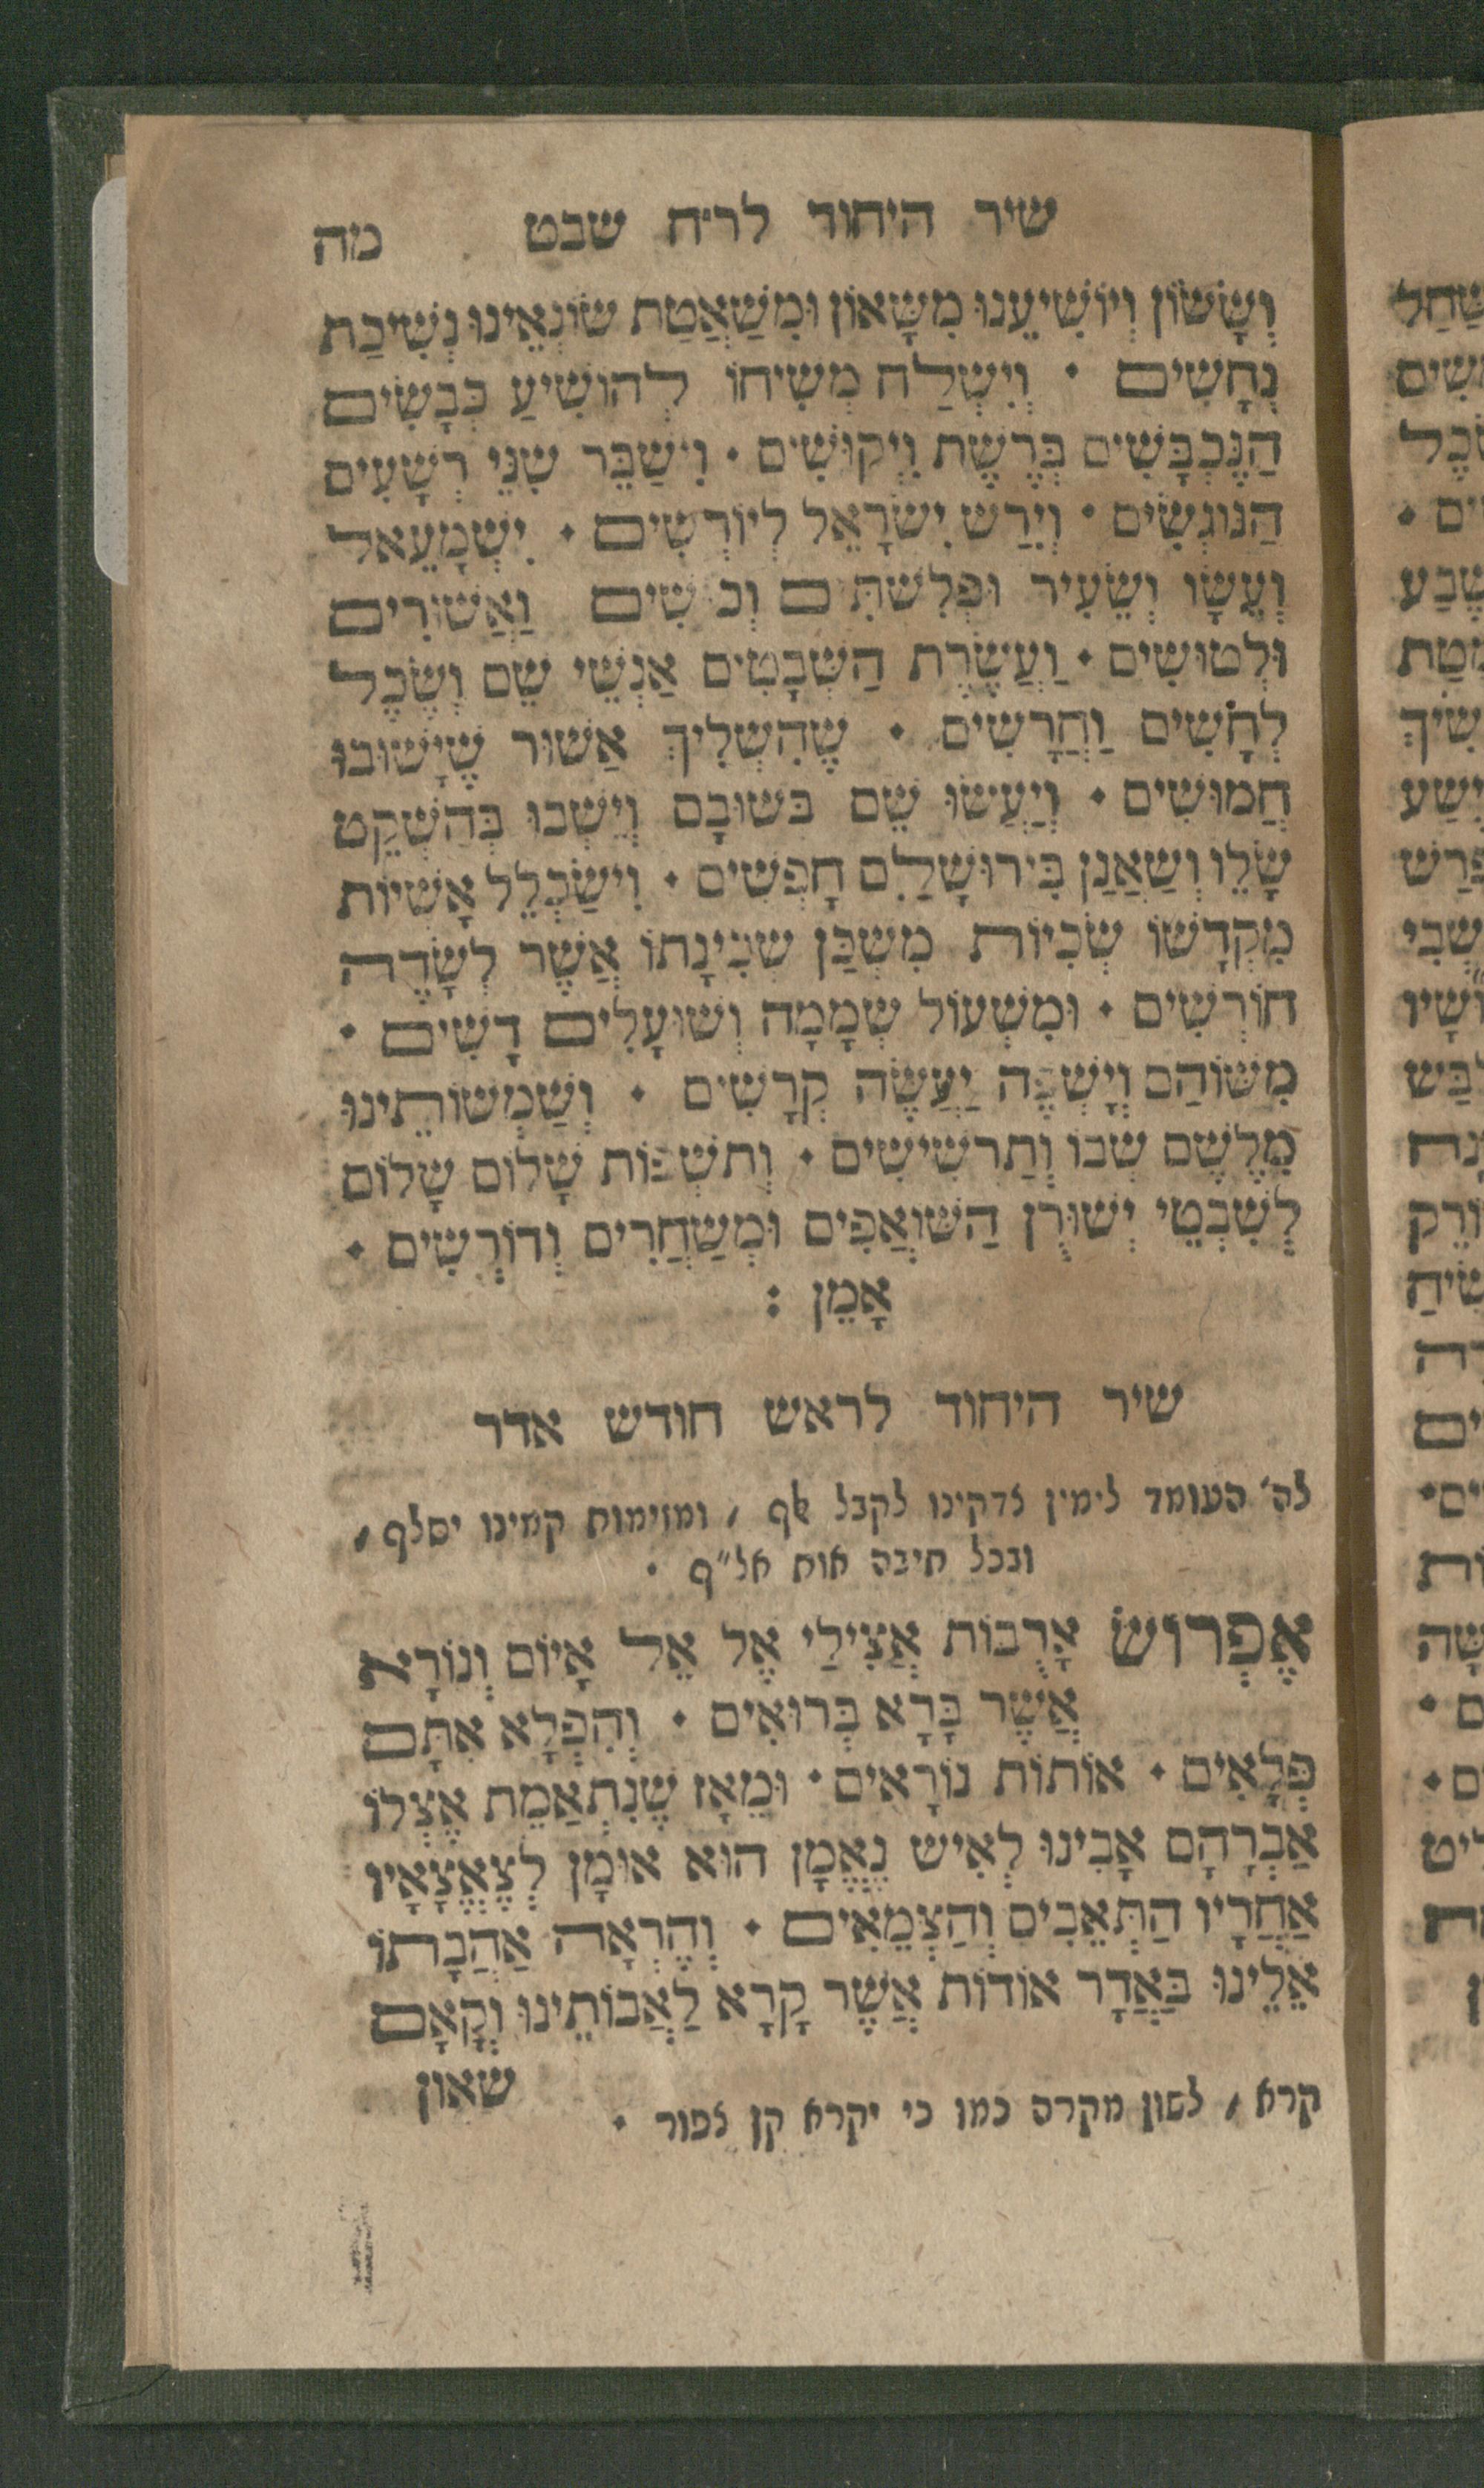 שיר היחוד לר״ח שבט מה
וְשָׂשׂוֹן וְיוֹשִׁיעֵנוּ מִשָּׁאוֹן וּמִשַּׁאֲטַת שׂוֹנְאֵינוּ נְשִׁיכַת
נְחָשִׁים • וְיִשְׁלַח מְשִׁיחוֹ לְהוֹשִׁיעַ כְּבָשִׂים
הַנֶּכְבָּשִׁים בְּרֶשֶׁת וְיִקוּשִׁים • וִישַׁבֵּר שִׁנֵּי רְשָׁעִים
הַנּוֹגְשִׂים • וְיֵרַשׁ יִשְׂרָאֵל לְיוֹרְשִׁים • יִשְׁמָעֵאל
וְעֵשָׂו וְשֵׂעִיר וּפְלִשְׁתִּים וְכוּשִׁים וַאֲשׁוּרִים
וּלְטוּשִׁים • וַעֲשֶׂרֶת הַשְּׁבָטִים אַנְשֵׁי שֵׁם וְשֵׂכֶל
לְחָשִׁים וַחֲרָשִׁים • שֶׁהִשְׁלִיךְ אַשּׁוּר שֶׁיָּשׁוּבוּ
חֲמוּשִׁים • וְיַעֲשׂוּ שֵׁם בְּשׁוּבָם וְיֵשְׁבוּ בְּהַשְׁקֵט
שָׁלֵו וְשַׁאֲנַן בִּירוּשָׁלַם חָפְשִׁים • וִישַׁכְלֵל אָשְׁיוֹת
מִקְדָּשׁוֹ שְׂכִיּוֹת מִשְׁכַּן שְׁכִינָתוֹ אֲשֶׁר לְשָׂדֶה
חוֹרְשִׁים • וּמִשְׁעוֹל שְׁמָמָה וְשׁוּעָלִים דָּשִׁים •
מִשּׁוֹהַם וְיָשְׁפֶה יַעֲשֶׂה קְרָשִׁים • וְשִׁמְשׁוֹתֵינוּ
מִלֶּשֶׁם שְׁבוֹ וְתַרְשִׁישִׁים • וְתִשְׁפּוֹת שָׁלוֹם שָׁלוֹם
לְשִׁבְטֵי יְשׁוּרֻן הַשּׁוֹאֲפִים וּמְשַׁחֲרִים וְדוֹרְשִׁים •
אָמֵן :
שיר היחוד לראש חודש אדר
לה׳ העומד לימין צדקינו לקבל אלף , ומזימות קמינו יסלף ,
ובכל תיבה אות אל״ף •
אֶפְרוֹשׂ אָרְבוֹת אֲצִילַי אֶל אֵל אָיוֹם וְנוֹרָא
אֲשֶׁר בָּרָא בְּרוּאִים • וְהִפְלָא אִתָּם
פְּלָאִים • אוֹתוֹת נוֹרָאִים • וּמֵאָז שֶׁנִּתְאַמֵּת אֶצְלוֹ
אַבְרָהָם אָבִינוּ לְאִישׁ נֶאֱמָן הוּא אוּמָן לְצֶאֱצָאָיו
אַחֲרָיו הַתְּאֵבִים וְהַצְּמֵאִים • וְהֶרְאָה אַהֲבָתוֹ
אֵלֵינוּ בַּאֲדָר אוֹדוֹת אֲשֶׁר קָרָא לַאֲבוֹתֵינוּ וְקָאָם
שאון
קרא , לשון מקרה כמו כי יקרא קן צפור •